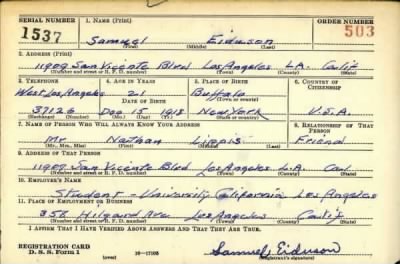 SERIAL NUMBER 1. NAME (Print) ORDER NUMBER
1537 Samuel Eiduson 503
(First) (Middle) (Last)
2. ADDRESS (Print)
11909 San Vicente Blvd Los Angeles L.A. Calif
(Number and street or R. F. D. number) (Town) (County) (State)
3. TELEPHONE 4. AGE IN YEARS 5. PLACE OF BIRTH 6. COUNTRY OF CITIZENSHIP
West Los Angeles 21 Buffalo
DATE OF BIRTH (Town or county)
37126 Dec 15 1918 New York U.S.A.
(Exchange) (Number) (Mo.) (Day) (Yr.) (State or country)
7. NAME OF PERSON WHO WILL ALWAYS KNOW YOUR ADDRESS 8. RELATIONSHIP OF THAT PERSON
Mr. Nathan Friend
(Mr., Mrs., Miss) (First) (Middle) (Last)
9. ADDRESS OF THAT PERSON
11909 San Vicente Blvd Los Angeles L.A. Cal
(Number and street or R. F. D. number) (Town) (County) (State)
10. EMPLOYER'S NAME
Student University California Los Angeles
11. PLACE OF EMPLOYMENT OR BUSINESS
358 Hilgard Ave Los Angeles Calif
(Number and street or R. F. D. number) (Town) (County) (State)
I AFFIRM THAT I HAVE VERIFIED ABOVE ANSWERS AND THAT THEY ARE TRUE.
REGISTRATION CARD
D. S. S. Form 1 (over) 16—17105 Samuel Eiduson
(Registrant's signature)